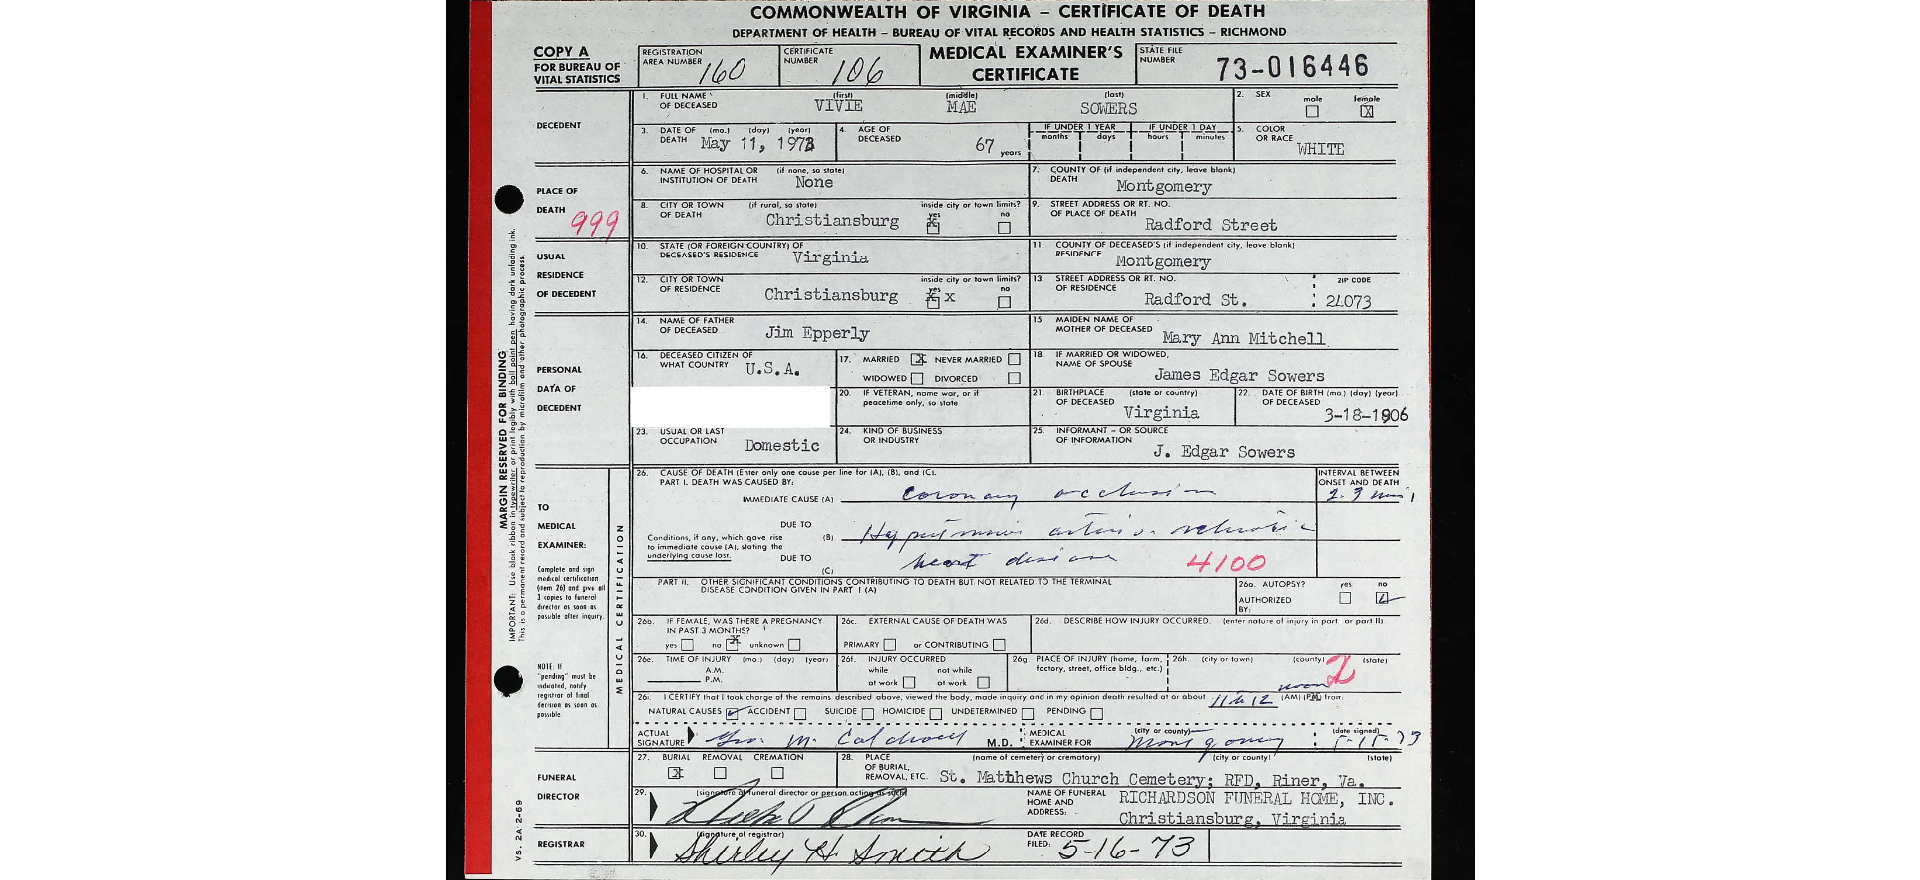 COMMONWEALTH OF VIRGINIA – CERTIFICATE OF DEATH
DEPARTMENT OF HEALTH – BUREAU OF VITAL RECORDS AND HEALTH STATISTICS – RICHMOND
COPY A
FOR BUREAU OF
VITAL STATISTICS
REGISTRATION
AREA NUMBER 160
CERTIFICATE
NUMBER 106
MEDICAL EXAMINER'S
CERTIFICATE
STATE FILE
NUMBER 73-016446
DECEDENT
1. FULL NAME (first) (middle) (last)
OF DECEASED VIVIE MAE SOWERS
2. SEX male female X
3. DATE OF (mo.) (day) (year)
DEATH May 11, 1973
4. AGE OF
DECEASED 67 years
IF UNDER 1 YEAR
months days
IF UNDER 1 DAY
hours minutes
5. COLOR
OR RACE WHITE
PLACE OF
DEATH 999
6. NAME OF HOSPITAL OR (if none, so state)
INSTITUTION OF DEATH None
7. COUNTY OF (if independent city, leave blank)
DEATH Montgomery
8. CITY OR TOWN (if rural, so state) inside city or town limits?
OF DEATH Christiansburg yes X no
9. STREET ADDRESS OR RT. NO.
OF PLACE OF DEATH Radford Street
USUAL
RESIDENCE
OF DECEDENT
10. STATE (OR FOREIGN COUNTRY) OF
DECEASED'S RESIDENCE Virginia
11 COUNTY OF DECEASED'S (if independent city, leave blank)
RESIDENCE Montgomery
12. CITY OR TOWN inside city or town limits?
OF RESIDENCE Christiansburg yes X x no
13 STREET ADDRESS OR RT. NO. ZIP CODE
OF RESIDENCE Radford St. 24073
PERSONAL
DATA OF
DECEDENT
14. NAME OF FATHER
OF DECEASED Jim Epperly
15 MAIDEN NAME OF
MOTHER OF DECEASED Mary Ann Mitchell
16. DECEASED CITIZEN OF
WHAT COUNTRY U.S.A.
17. MARRIED X NEVER MARRIED
WIDOWED DIVORCED
18. IF MARRIED OR WIDOWED,
NAME OF SPOUSE James Edgar Sowers
20. IF VETERAN, name war, or if
peacetime only, so state
21. BIRTHPLACE (state or country)
OF DECEASED Virginia
22. DATE OF BIRTH (mo.) (day) (year)
OF DECEASED 3-18-1906
23. USUAL OR LAST
OCCUPATION Domestic
24. KIND OF BUSINESS
OR INDUSTRY
25. INFORMANT – OR SOURCE
OF INFORMATION J. Edgar Sowers
TO
MEDICAL
EXAMINER:
Complete and sign
medical certification
(item 26) and give all
3 copies to funeral
director as soon as
possible after inquiry.
NOTE: If
"pending" must be
indicated, notify
registrar of final
decision as soon as
possible.
MEDICAL CERTIFICATION
26. CAUSE OF DEATH (Enter only one cause per line for (A), (B), and (C).
PART I. DEATH WAS CAUSED BY:
INTERVAL BETWEEN
ONSET AND DEATH
IMMEDIATE CAUSE (A) coronary occlusion
Conditions, if any, which gave rise
to immediate cause (A), stating the
underlying cause last.
DUE TO
(B) Hypertensive arterio sclerotic
DUE TO
(C) heart disease 4100
PART II. OTHER SIGNIFICANT CONDITIONS CONTRIBUTING TO DEATH BUT NOT RELATED TO THE TERMINAL
DISEASE CONDITION GIVEN IN PART I (A)
26a. AUTOPSY? yes no
AUTHORIZED
BY:
26b. IF FEMALE, WAS THERE A PREGNANCY
IN PAST 3 MONTHS?
yes no X unknown
26c. EXTERNAL CAUSE OF DEATH WAS
PRIMARY or CONTRIBUTING
26d. DESCRIBE HOW INJURY OCCURRED. (enter nature of injury in part I or part II)
26e. TIME OF INJURY (mo.) (day) (year)
A.M.
P.M.
26f. INJURY OCCURRED
while not while
at work at work
26g. PLACE OF INJURY (home, farm,
factory, street, office bldg., etc.)
26h. (city or town) (county) (state)
2
26i. I CERTIFY that I took charge of the remains described above, viewed the body, made inquiry and in my opinion death resulted at or about 11 to 12 noon (AM) (PM) from:
NATURAL CAUSES ACCIDENT SUICIDE HOMICIDE UNDETERMINED PENDING
ACTUAL
SIGNATURE Geo. M. Caldwell M.D.
MEDICAL (city or county)
EXAMINER FOR Montgomery
(date signed)
FUNERAL
DIRECTOR
27. BURIAL X REMOVAL CREMATION
28. PLACE (name of cemetery or crematory) (city or county) (state)
OF BURIAL,
REMOVAL, ETC. St. Matthews Church Cemetery; RFD, Riner, Va.
29. (signature of funeral director or person acting as such)
NAME OF FUNERAL
HOME AND
ADDRESS: RICHARDSON FUNERAL HOME, INC.
Christiansburg, Virginia
REGISTRAR
30. (signature of registrar)
Shirley H. Smith
DATE RECORD
FILED: 5-16-73
MARGIN RESERVED FOR BINDING
IMPORTANT: Use black ribbon in typewriter or print legibly with ball point pen having dark unfading ink.
This is a permanent record and subject to reproduction by microfilm and other photographic process.
VS. 2A 2-69